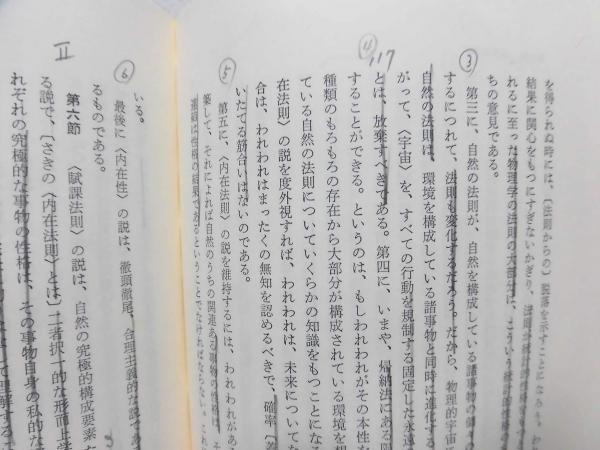 を得られぬ時には、〔法則からの〕脱落を示すことになろう。
結果に関心をもつにすぎないかぎり、
れるに至った物理学の法則の大部分は、こういう統計的性格の
ちの意見である。
③
第三に、自然の法則が、自然を構成している諸事物の
するにつれて、法則も変化するだろう。だから、物理的宇宙
自然の法則は、環境を構成している諸事物と同時に進化する
がって、〈宇宙〉を、すべての行動を規制する固定した永遠
④ 117
とは、放棄すべきである。第四に、いまや、帰納法にある限
することができる。というのは、もしわれわれがその本性を
種類のもろもろの存在から大部分が構成されている環境を想
ている自然の法則についていくらかの知識をもつことになる
在法則〉の説を度外視すれば、われわれは、未来についてな
合は、われわれはまったくの無知を認めるべきで、確率〔
いたてる筋合いはないのである。
⑤
第五に、〈内在法則〉の説を維持するには、われわれがあ
築して、それによれば自然のうちの関連ある事物の性格は、
連関は性格の結果であるということでなければならない。これ
いる。
⑥
最後に〈内在性〉の説は、徹頭徹尾、合理主義的な説であ
るものである。
第六節
II
〈賦課法則〉の説は、自然の究極的構成要素
る説で、〔さきの〈内在法則〉とは〕二者択一的な形而上学
れぞれの究極的な事物の性格は、その事物自身の私的な